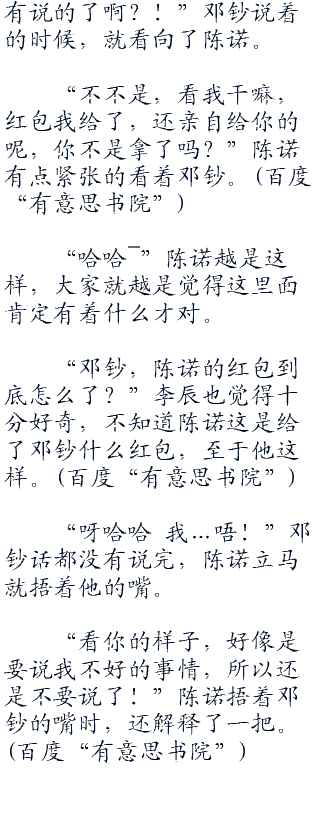 有说的了啊？！”邓钞说着
的时候，就看向了陈诺。
“不不是，看我干嘛，
红包我给了，还亲自给你的
呢，你不是拿了吗？”陈诺
有点紧张的看着邓钞。(百度
“有意思书院”)
“哈哈¯”陈诺越是这
样，大家就越是觉得这里面
肯定有着什么才对。
“邓钞，陈诺的红包到
底怎么了？”李辰也觉得十
分好奇，不知道陈诺这是给
了邓钞什么红包，至于他这
样。(百度“有意思书院”)
“呀哈哈 我…唔！”邓
钞话都没有说完，陈诺立马
就捂着他的嘴。
“看你的样子，好像是
要说我不好的事情，所以还
是不要说了！”陈诺捂着邓
钞的嘴时，还解释了一把。
(百度“有意思书院”)